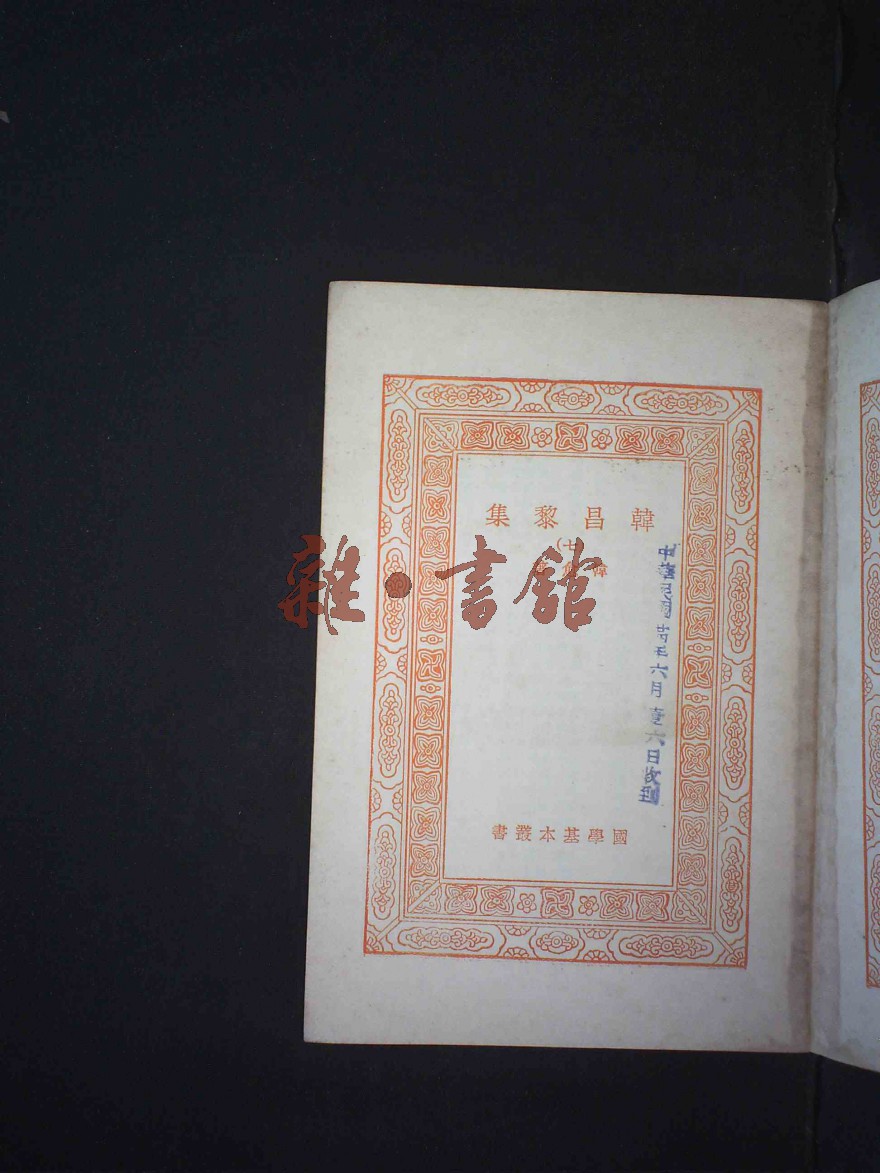 韓昌黎集
(七)
韓
國學基本叢書
中華民國廿五六月
六日收到
雜·書館